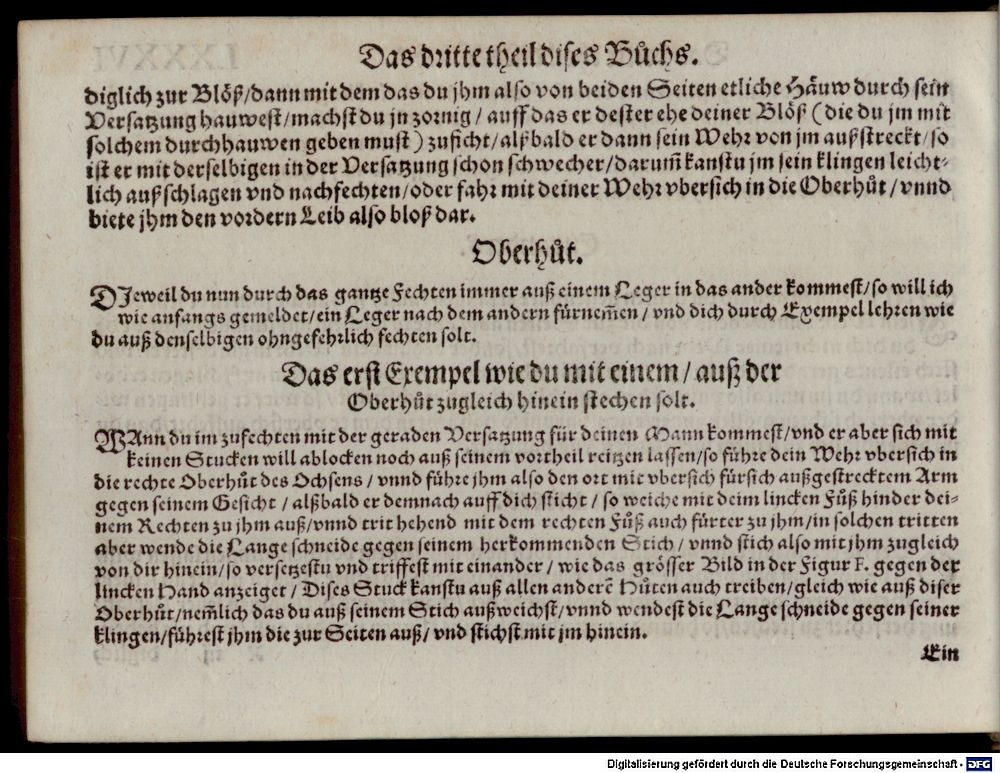 Das dritte theil dises Bůchs.
diglich zur Blöß/dann mit dem das du jhm also von beiden Seiten etliche Häuw durch sein
Versatzung hauwest/machst du jn zornig/ auff das er dester ehe deiner Blöß (die du jm mit
solchem durchhauwen geben must) zuficht/alßbald er dann sein Wehr von jm außstreckt/so
ist er mit derselbigen in der Versatzung schon schwecher/darum̃ kanstu jm sein klingen leicht⸗
lich außschlagen vnd nachfechten/oder fahr mit deiner Wehr vbersich in die Oberhůt/vnnd
biete jhm den vordern Leib also bloß dar.
Oberhůt.
DJeweil du nun durch das gantze Fechten immer auß einem Leger in das ander kommest/so will ich
wie anfangs gemeldet/ein Leger nach dem andern fürnem̃en/ vnd dich durch Exempel lehren wie
du auß denselbigen ohngefehrlich fechten solt.
Das erst Exempel wie du mit einem/ auß der
Oberhůt zugleich hinein stechen solt.
WAnn du im zufechten mit der geraden Versatzung für deinen Mann kommest/vnd er aber sich mit
keinen Stucken will ablocken noch auß seinem vortheil reitzen lassen/so führe dein Wehr vbersich in
die rechte Oberhůt des Ochsens/ vnnd führe jhm also den ort mit vbersich fürsich außgestrecktem Arm
gegen seinem Gesicht/ alßbald er demnach auff dich sticht/ so weiche mit deim lincken Fůß hinder dei⸗
nem Rechten zu jhm auß/vnnd trit hehend mit dem rechten Fůß auch fürter zu jhm/in solchen tritten
aber wende die Lange schneide gegen seinem herkommenden Stich/ vnnd stich also mit jhm zugleich
von dir hinein/so versetzestu vnd triffest mit einander/ wie das grösser Bild in der Figur F. gegen der
lincken Hand anzeiget/ Dises Stuck kanstu auß allen anderẽ Hůten auch treiben/gleich wie auß diser
Oberhůt/nem̃lich das du auß seinem Stich außweichst/vnnd wendest die Lange schneide gegen seiner
klingen/führest jhm die zur Seiten auß/ vnd stichst mit jm hinein.
Ein
Digitalisierung gefördert durch die Deutsche Forschungsgemeinschaft - DFG